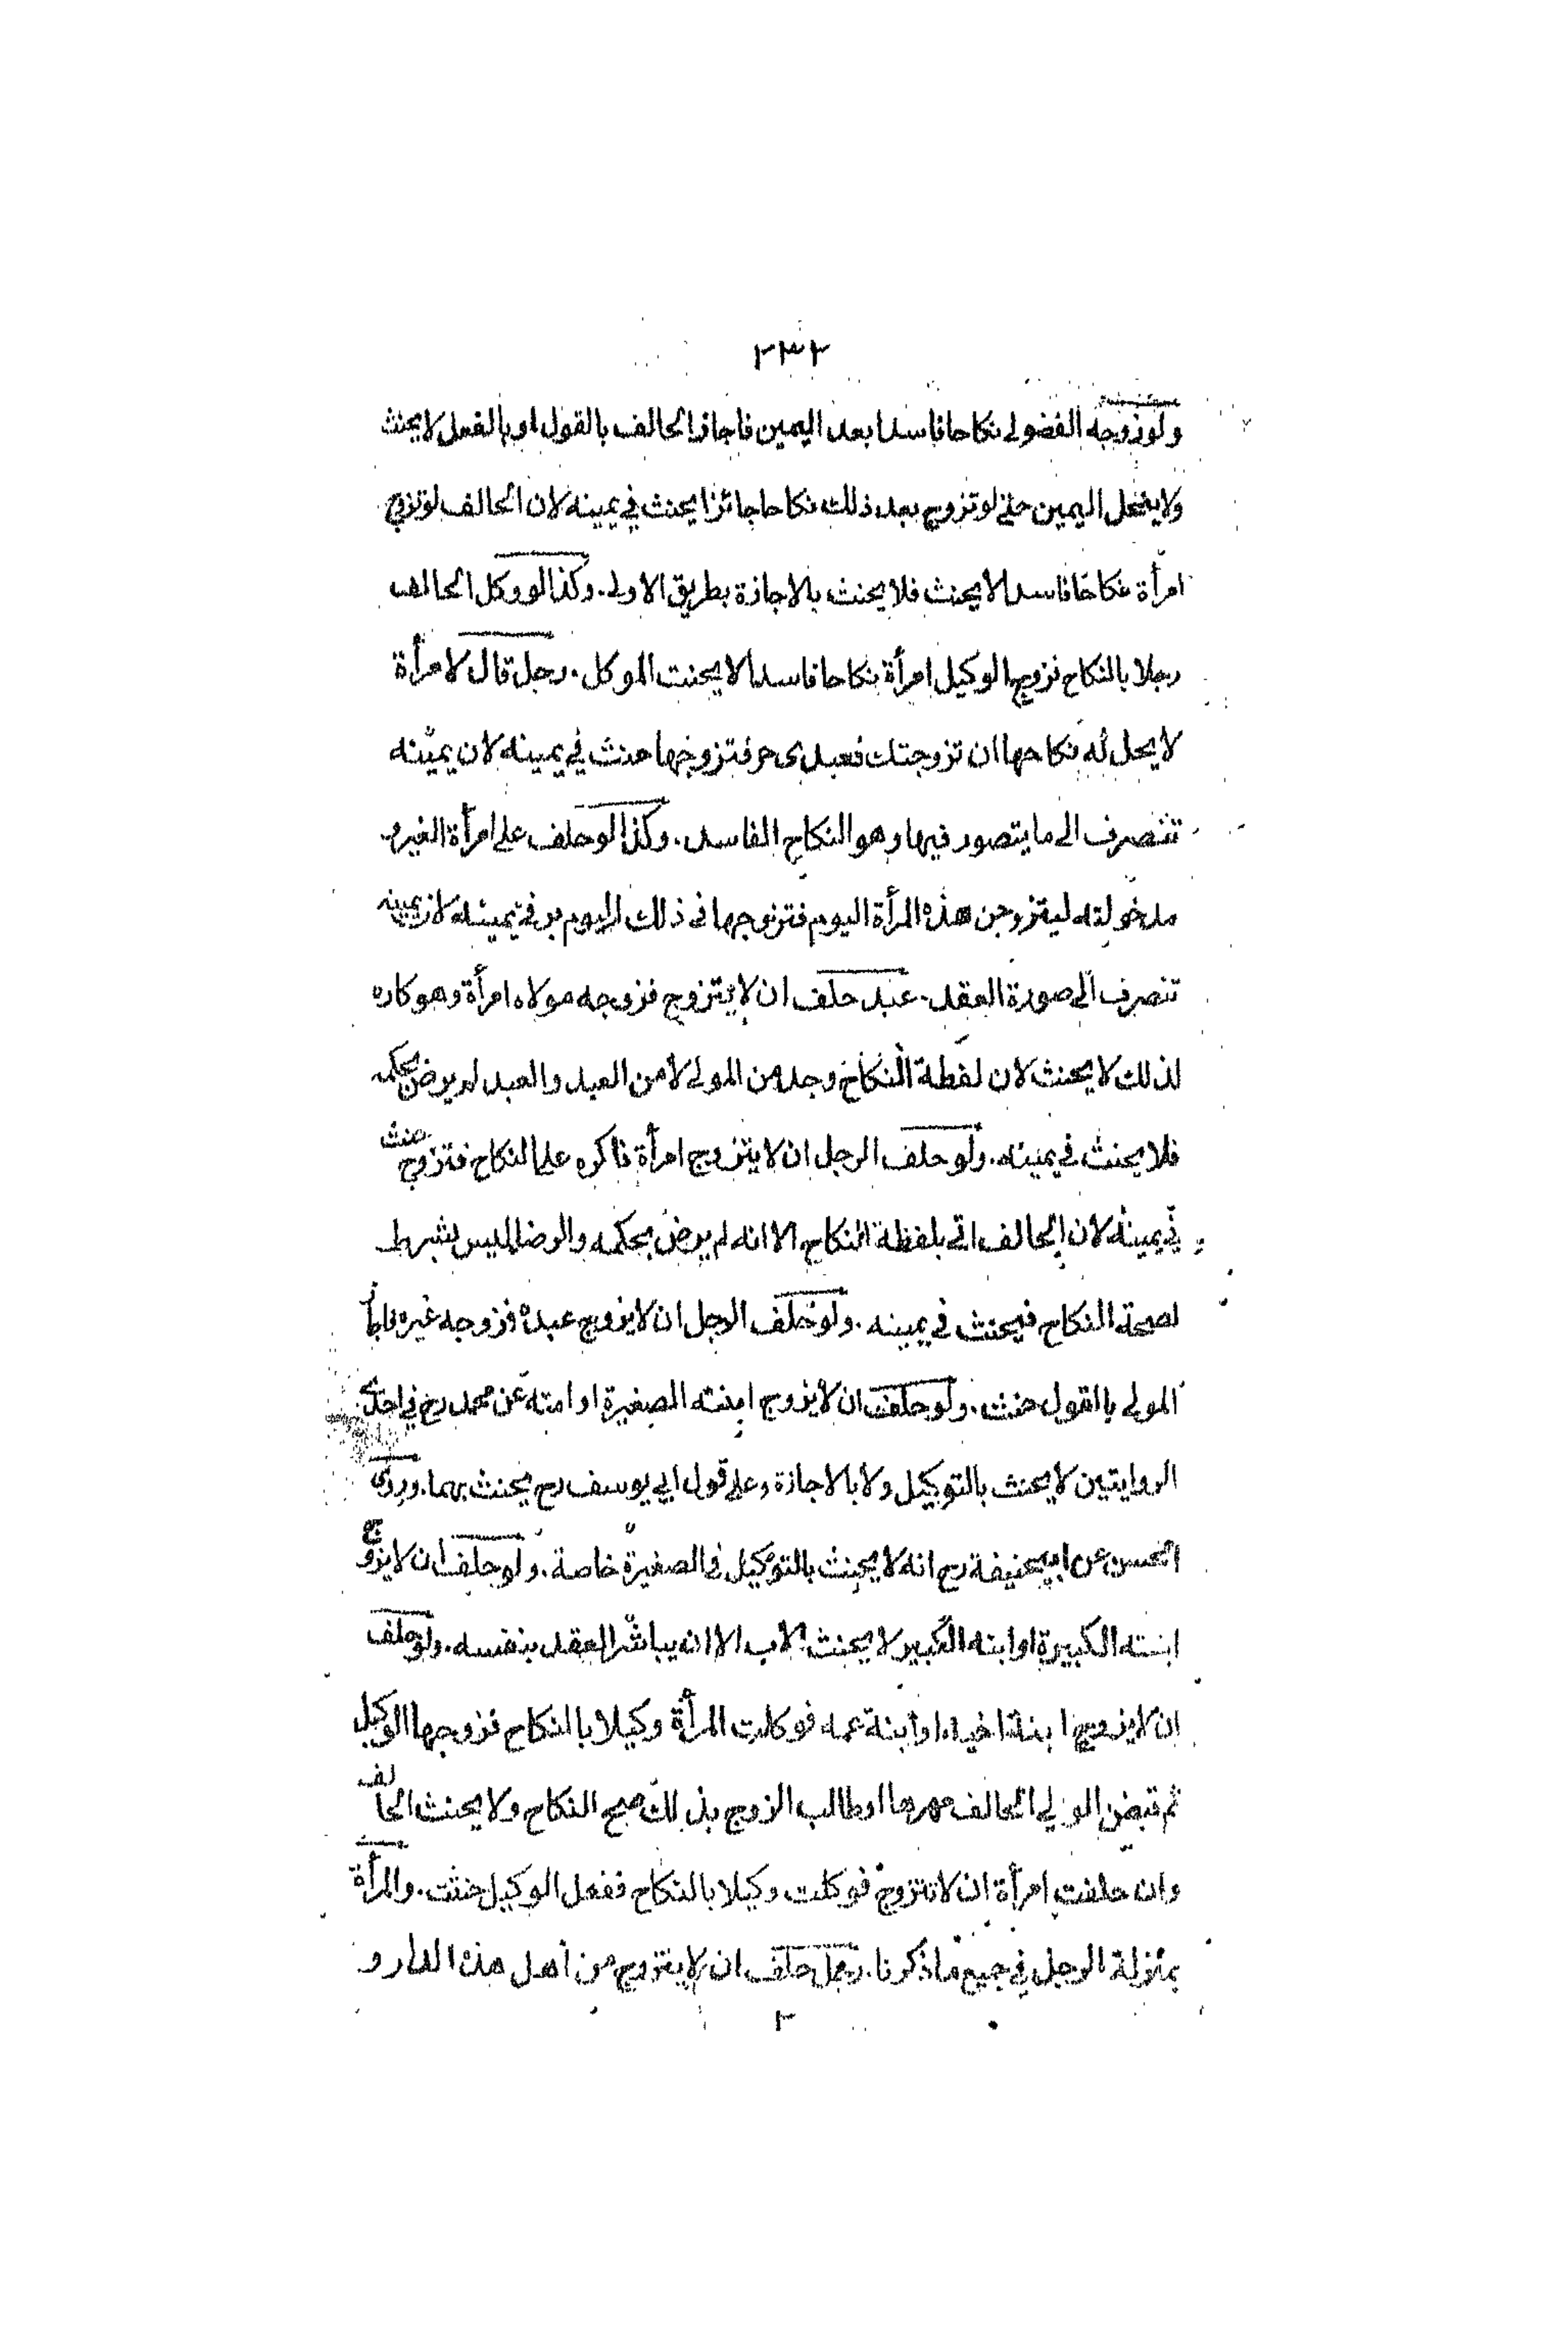 ٢٣٢
ولو زوجه الفضولى نكاحا فاسدا بعد اليمين فاجاز الحالف بالقول او بالفعل لا يحنث
ولا ينحل اليمين حتى لو تزوج بعد ذلك نكاحا جائزا يحنث في يمينه لان الحالف لو تزوج
امرأة نكاحا فاسدا لا يحنث فلا يحنث بالاجازة بطريق الاولى. وكذا لو وكل الحالف
رجلا بالنكاح فزوج الوكيل امرأة نكاحا فاسدا لا يحنث الموكل. رجل قال لامرأة
لا يحل له نكاحها ان تزوجتك فعبدى حر فتزوجها حنث في يمينه لان يمينه
تنصرف الى ما يتصور فيها وهو النكاح الفاسد. وكذا لو حلف على امرأة الغير و
مدخولته ليتزوجن هذه المرأة اليوم فتزوجها فى ذلك اليوم بر في يمينه لان يمينه
تنصرف الى صورة العقد. عبد حلف ان لا يتزوج فزوجه مولاه امرأة وهو كاره
لذلك لا يحنث لان لفظة النكاح وجد من المولى لا من العبد والعبد لم يرض بحكمه
فلا يحنث في يمينه. ولو حلف الرجل ان لا يتزوج امرأة فاكره على النكاح فتزوج حنث
في يمينه لان الحالف اتى بلفظة النكاح الا انه لم يرض بحكمه والرضا ليس بشرط
لصحة النكاح فيحنث في يمينه. ولو حلف الرجل ان لا يزوج عبده فزوجه غيره فاجاز
المولى بالقول حنث. ولو حلف ان لا يزوج ابنته الصغيرة او امته عن محمد رح في احدى
الروايتين لا يحنث بالتوكيل ولا بالاجازة وعلى قول ابي يوسف رح يحنث بهما. وروى
الحسن عن ابيحنيفة رح انه لا يحنث بالتوكيل فى الصغيرة خاصة. ولو حلف ان لا يزوج
ابنته الكبيرة او ابنه الكبير لا يحنث الاب الا ان يباشر العقد بنفسه. ولو حلف
ان لا يزوج ابنة اخيه او ابنة عمه فوكلت المرأة وكيلا بالنكاح فزوجها الوكيل
ثم قبض الولي الحالف مهرها او طالب الزوج بذلك صح النكاح ولا يحنث الحالف
وان حلفت امرأة ان لا تتزوج فوكلت وكيلا بالنكاح ففعل الوكيل حنثت. والمرأة
بمنزلة الرجل في جميع ما ذكرنا. رجل حلف ان لا يتزوج من اهل هذه الدار و
٢